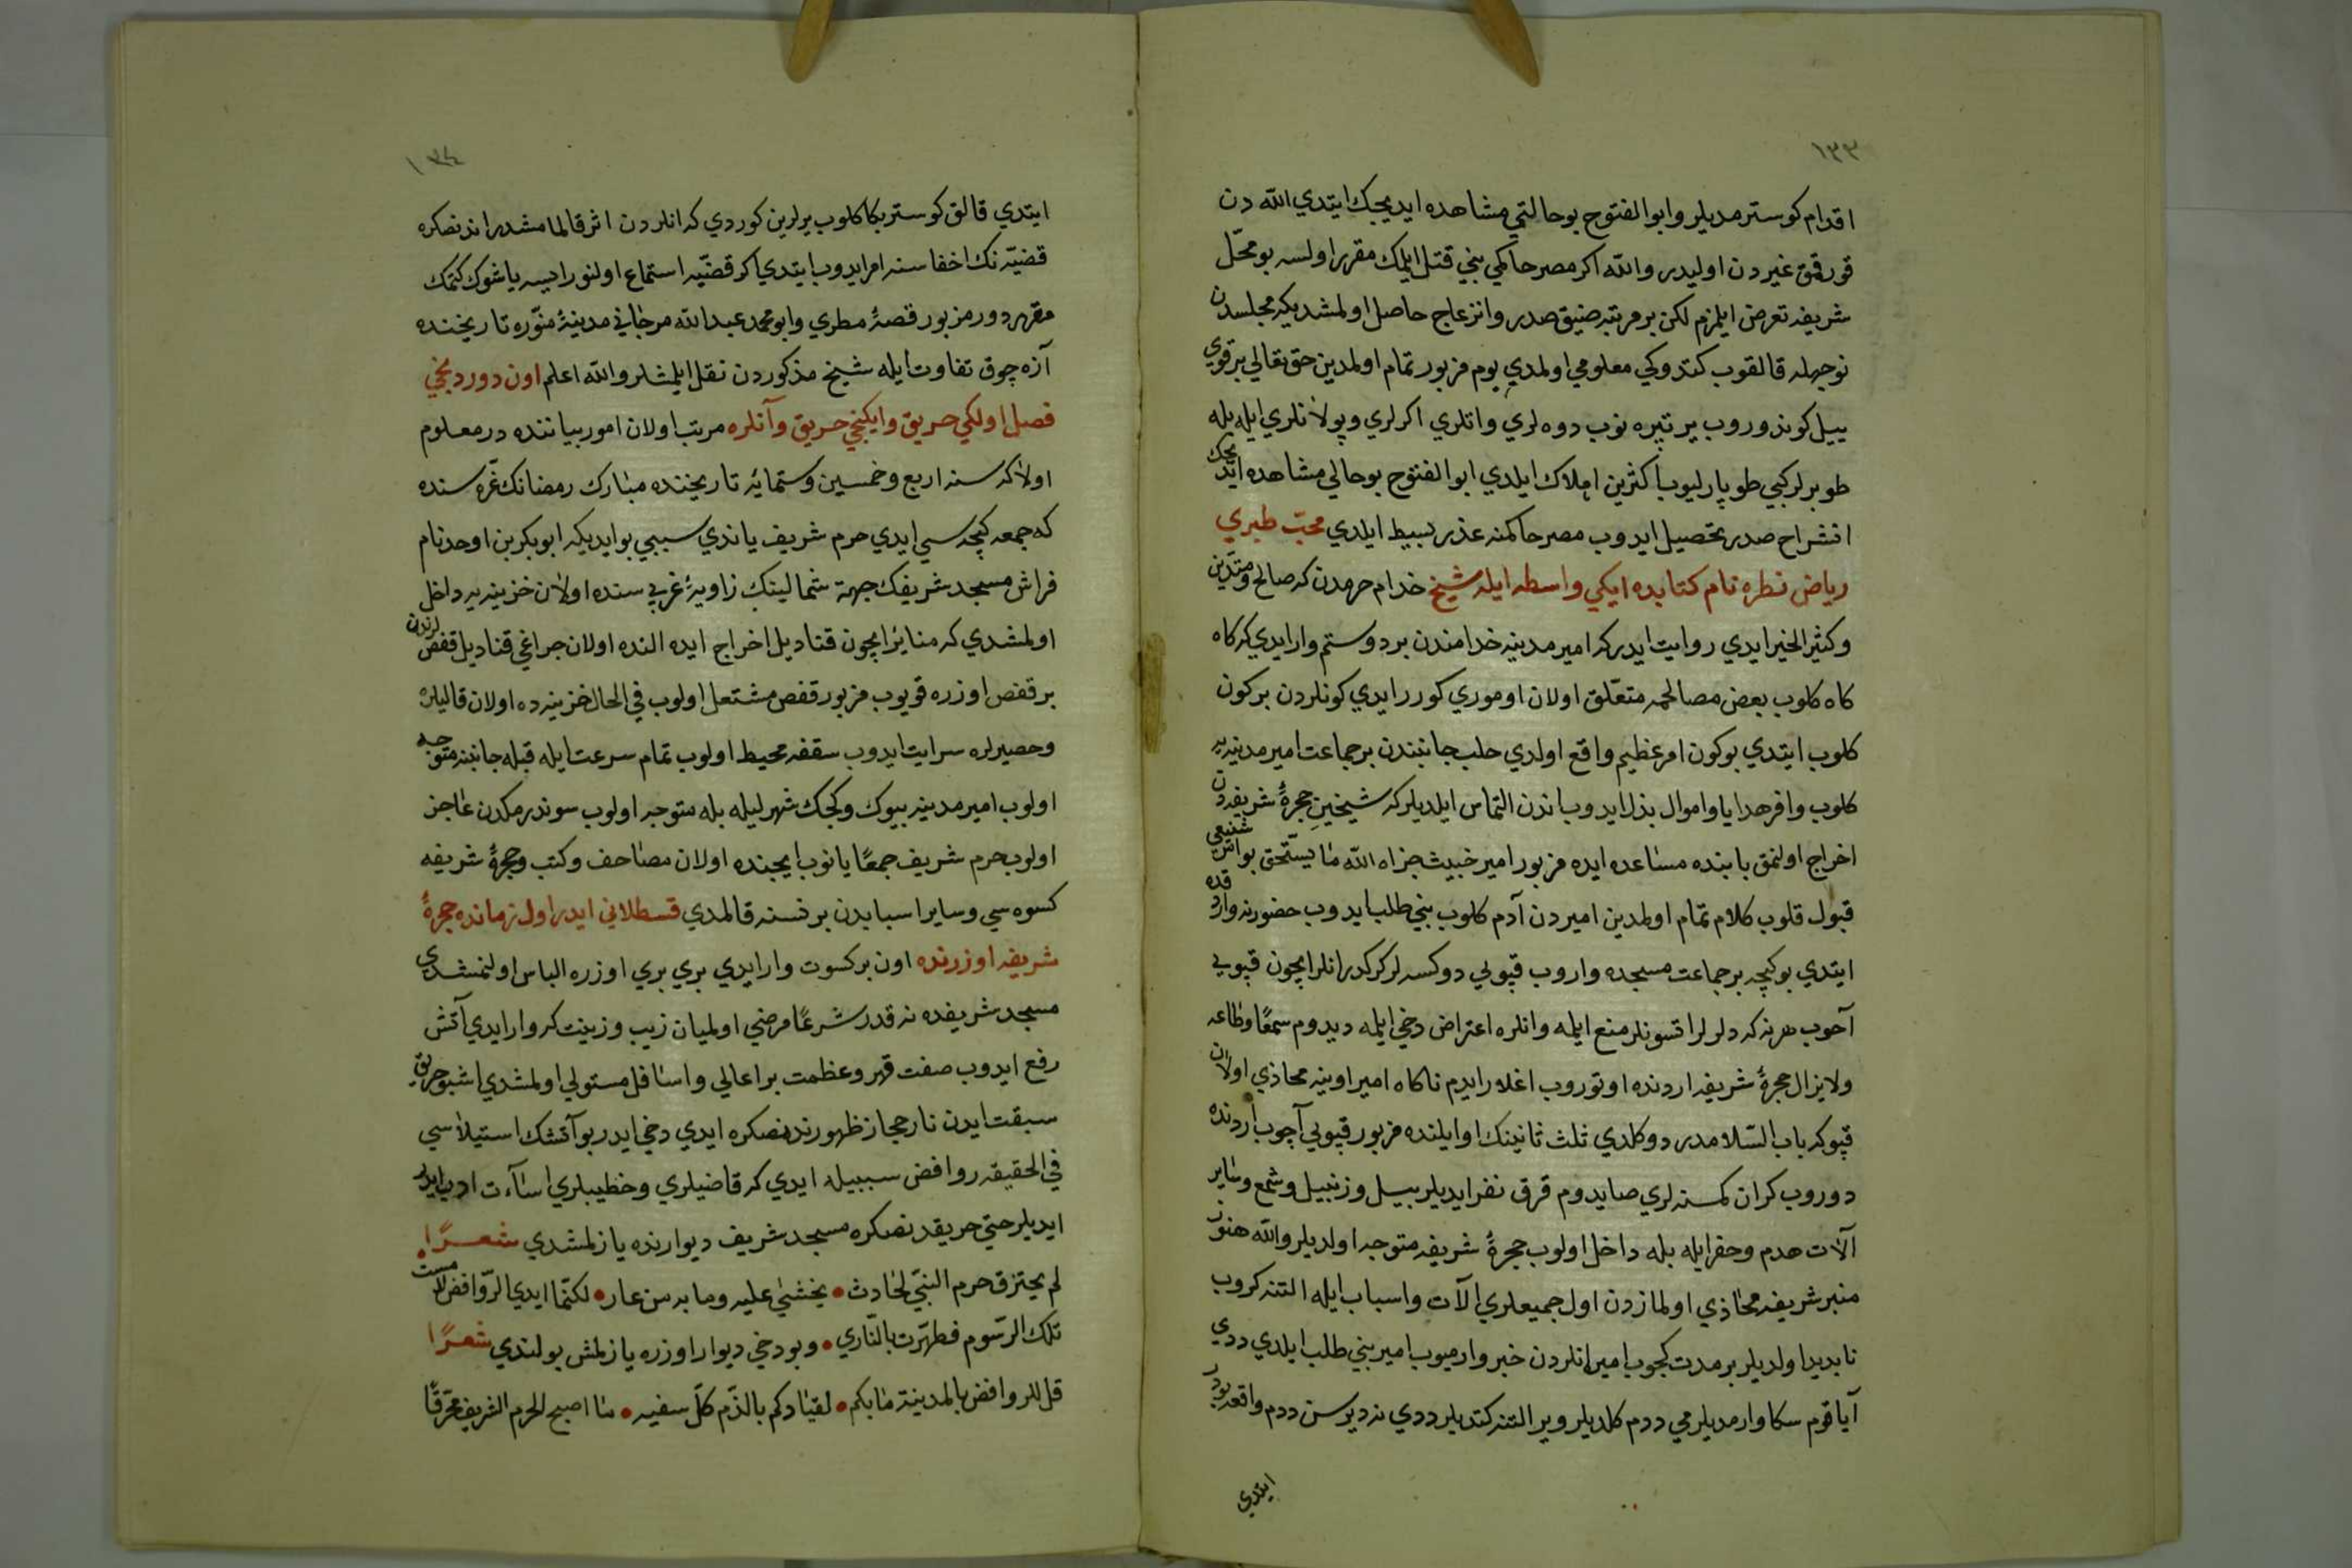 ١٣٣
اقدام كوسترمديلر وابو الفتوح بوحالتي مشاهده ايديجك ايتدي الله دن
قورقمق غيردن اوليدر والله اكر مصر حاكمي بني قتل ايلمك مقرر اولسه بو محلّ
شريفه تعرض ايلمزم لكن بر مرتبه ضيق صدر وانزعاج حاصل اولمشديكه مجلسدن
نوجهله قالقوب كتدوكي معلومي اولمدي يوم مزبور تمام اولمدين حق تعالي بر قوي
ييل كوندوروب ير تپره نوب دوه لري واتلري اكرلري وپولانلري ايله بله
طوبرلر كبي طوپارليوب اكثرين اهلاك ايلدي ابو الفتوح بوحالي مشاهده ايديجك
انشراح صدر تحصيل ايدوب مصر حاكمنه عذر بسيط ايلدي محبّ طبري
رياض نطره نام كتابده ايكي واسطه ايله شيخ خدام حرمدن كه صالح ومتديّن
وكثير الخير ايدي روايت ايدر كه امير مدينه خدامندن بر دوستم وار ايدي كه كاه
كاه كلوب بعض مصالحمه متعلّق اولان اوموري كورر ايدي كونلردن بر كون
كلوب ايتدي بوكون امر عظيم واقع اولدي حلب جانبندن بر جماعت امير مدينه يه
كلوب وافر هدايا واموال بذل ايدوب اندن التماس ايلديلر كه شيخينِ حجرهٔ شريفه دن
اخراج اولنمق بابنده مساعده ايده مزبور امير خبيث جزاه الله ما يستحق بو امر شنيعي
قبول قلوب كلام تمام اولمدين اميردن آدم كلوب بني طلب ايدوب حضورنه واردقده
ايتدي بوكيجه بر جماعت مسجده واروب قپويي دوكسه لر كركدر انلر ايچون قپويي
آچوب هرنه كه دلرلر اتسونلر منع ايلمه وانلره اعتراض دخي ايلمه ديدوم سمعًا وطاعه
ولايزال حجرهٔ شريفه اردنده اوتوروب اغلار ايدم ناكاه امير اوينه محاذي اولان
قپوكه باب السّلامدر دوكلدي ثلث ثانينك اوايلنده مزبور قپويي آچوب اردنده
دوروب كران كمسنه لري صايدوم قرق نفر ايديلر بيل وزنبيل وشمع وساير
آلات هدم وحفر ايله بله داخل اولوب حجرهٔ شريفه متوجه اولديلر والله هنوز
منبر شريفه محاذي اولمازدن اول جميعلري آلات واسباب ايله التنه كروب
نابديد اولديلر بر مدت كچوب امير انلردن خبر وارميوب امير بني طلب ايلدي ددي
آيا قوم سكا وارمديلرمي ددم كلديلر وير التنه كتديلر ددي نه ديرسن ددم واقعه بودر
ايتدي
١٣٤
ايتدي قالق كوستر بكا كلوب يرلرين كوردي كه انلردن اثر قالمامشدر اندنصكره
قضيّه نك اخفاسنه امر ايدوب ايتدي اكر قضيّه استماع اولنور ايسه ياشوك كتمك
مقرر در مزبور قصهٔ مطري وابو محمد عبد الله مرجاني مدينهٔ منوّره تاريخنده
آزه چوق تفاوت ايله شيخ مذكوردن نقل ايلمشلر والله اعلم اون دوردنجي
فصل اولكي حريق وايكنجي حريق وآنلره مرتب اولان امور بياننده در معلوم
اولا كه سنه اربع وخمسين وستمائه تاريخنده مبارك رمضانك غرّه سنده
كه جمعه كيجه سي ايدي حرم شريف ياندي سببي بو ايديكه ابو بكر بن اوحد نام
فراش مسجد شريفك جهة شمالينك زاويهٔ غربي سنده اولان خزينه يه داخل
اولمشدي كه منايز ايچون قناديل اخراج ايده النده اولان جراغي قناديل قفصلرندن
بر قفص اوزره قويوب مزبور قفص مشتعل اولوب في الحال خزينه ده اولان قاليلره
وحصيرلره سرايت ايدوب سقفه محيط اولوب تمام سرعت ايله قبله جانبنه متوجه
اولوب امير مدينه بيوك وكجك شهر ليله بله متوجه اولوب سوندرمكدن عاجز
اولوب حرم شريف جمعًا يانوب ايچنده اولان مصاحف وكتب وحجرهٔ شريفه
كسوه سي وساير اسبابدن بر نسنه قالمدي قسطلاني ايدر اول زمانده حجرهٔ
شريفه اوزرنده اون بر كسوت وار ايدي بري بري اوزره الباس اولنمشدي
مسجد شريفده نه قدر شرعًا مرضي اولميان زيب وزينت كه وار ايدي آتش
رفع ايدوب صفت قهر وعظمت بر اعالي واسافل مستولي اولمشدي اشبو حريق
سبقت ايدن نار حجاز ظهورندنصكره ايدي دخي ايدر بو آتشك استيلاسي
في الحقيقه روافض سببيله ايدي كه قاضيلري وخطيبلري اساءت ادب ايدر
ايديلر حتي حريقدنصكره مسجد شريف ديوارنده يازلمشدي شعرًا
لم يحترق حرم النبّي لحادث • يخشي عليه وما به من عار • لكنّما ايدي الرّوافض لامست
تلك الرّسوم فطهّرت بالنّاري • وبو دخي ديوار اوزره يازلمش بولندي شعرًا
قل للروافض بالمدينة مابكم • لقيادكم بالذّم كلّ سفيه • ما اصبح الحرم الشريف محرّقًا